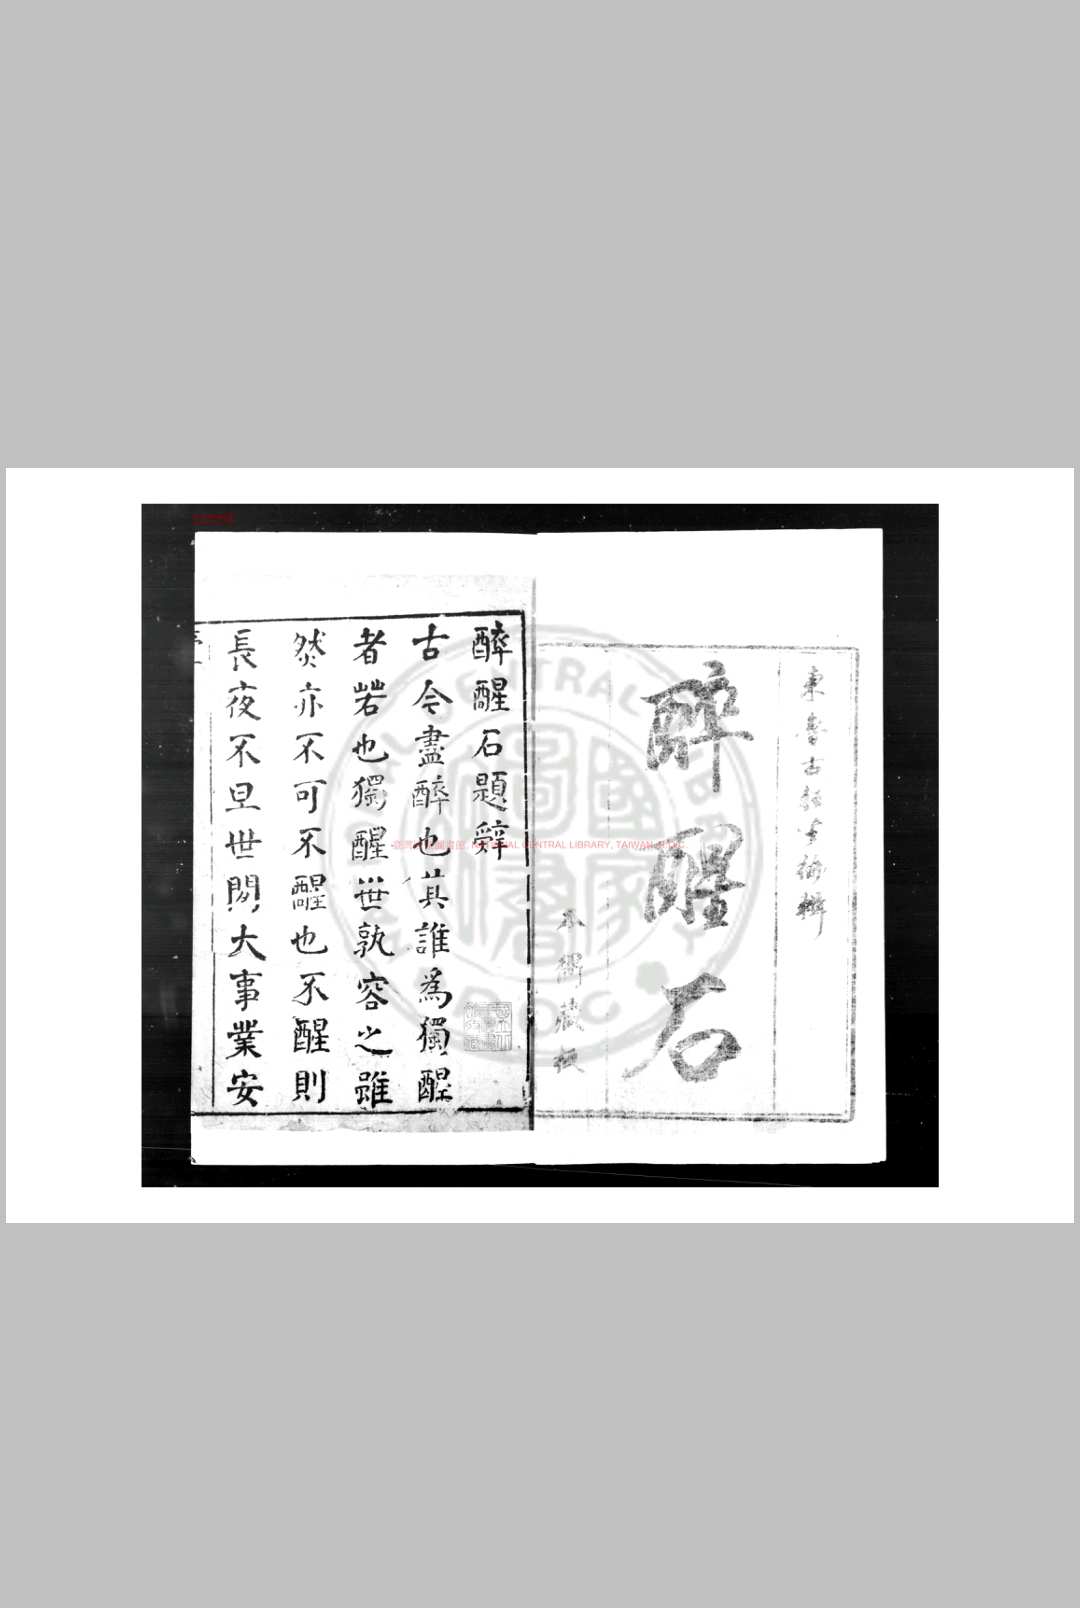 東魯古狂生編輯
醉醒石
本衙藏板
醉醒石題辭
古今盡醉也其誰為獨醒
者若也獨醒世孰容之雖
然亦不可不醒也不醒則
長夜不旦世間大事業安
臺灣國家圖書館, NATIONAL CENTRAL LIBRARY, TAIWAN, R.O.C.